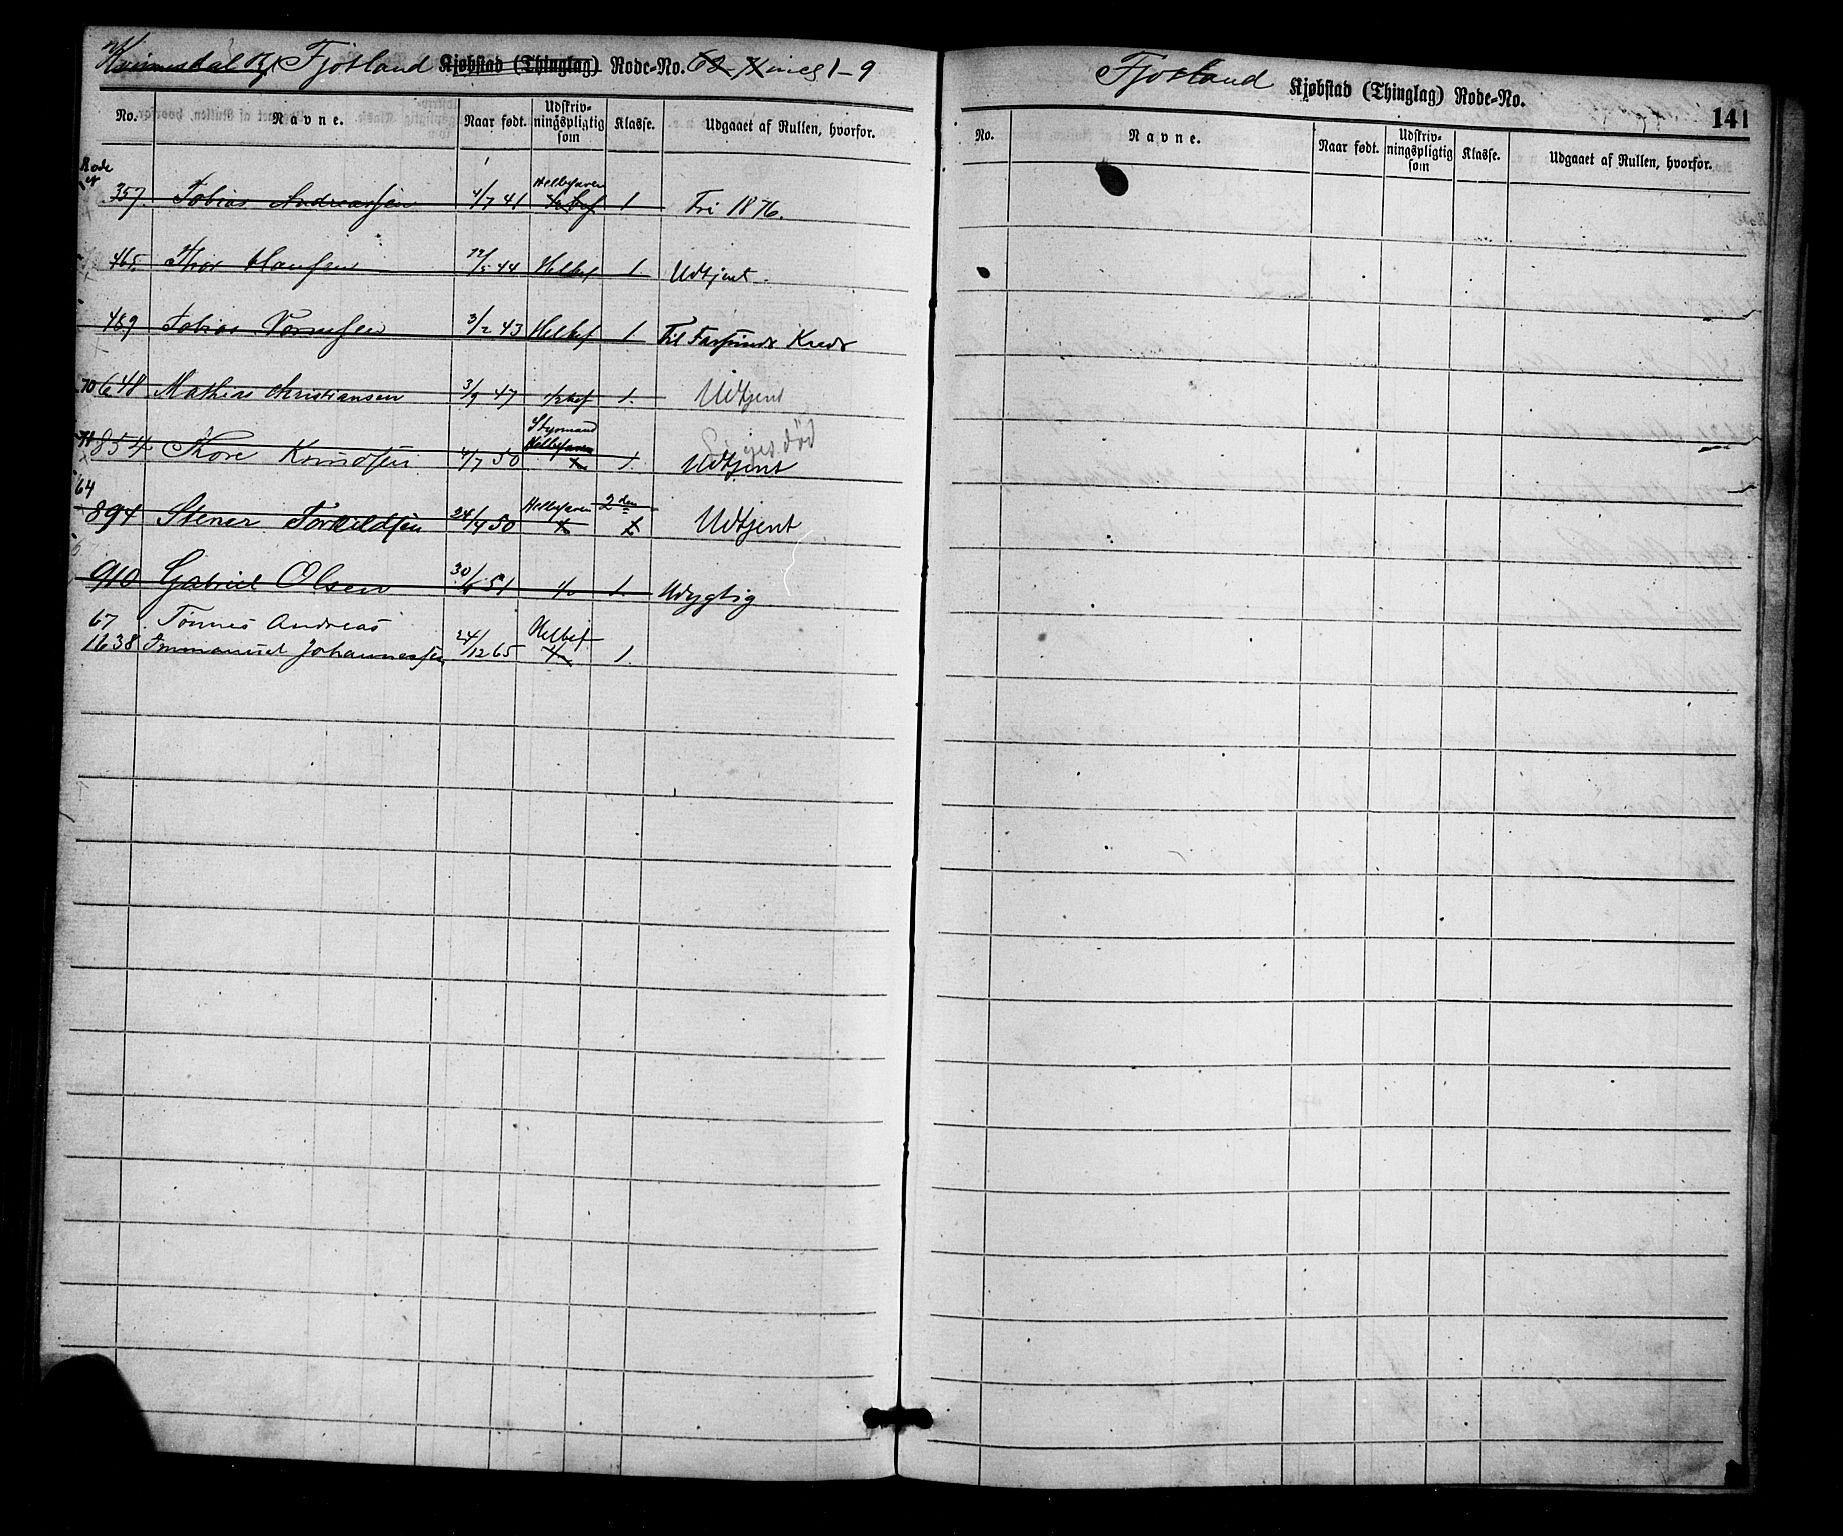 Fjotland Kjøbstad (Thinglag) Rode-No. 1-9
No. Navne. Naar født. Udskriv-ningspligtig som Klasse. Udgaaet af Rullen, hvorfor.
Rode
357. Tobias Andreassen 4/7 41 Helbefaren 1 Fri 1876.
465. Thor Hansen /5 44 Helbef 1. Udtjent.
489 Tobias 3/2 43 Helbef 1. Til Farsunds Kreds
70 648 Mathias Kristiansen 3/9 47 1. Udtjent
Styrmand
Helbefaren
854 Thore Knudsen 4/7 50 1. død Udtjent
64
894 Stener Torkildsen 24/4 50 Helbefaren 2den Udtjent
910 Gabriel Olsen 30/6 51 1. Udygtig
67 Tønnes Andreas
1638 Emmanuel Johannessen 24/12 65 Helbef 1.
Fjotland Kjøbstad (Thinglag) Rode-No.
141
No. Navne. Naar født. Udskriv-ningspligtig som Klasse. Udgaaet af Rullen, hvorfor.